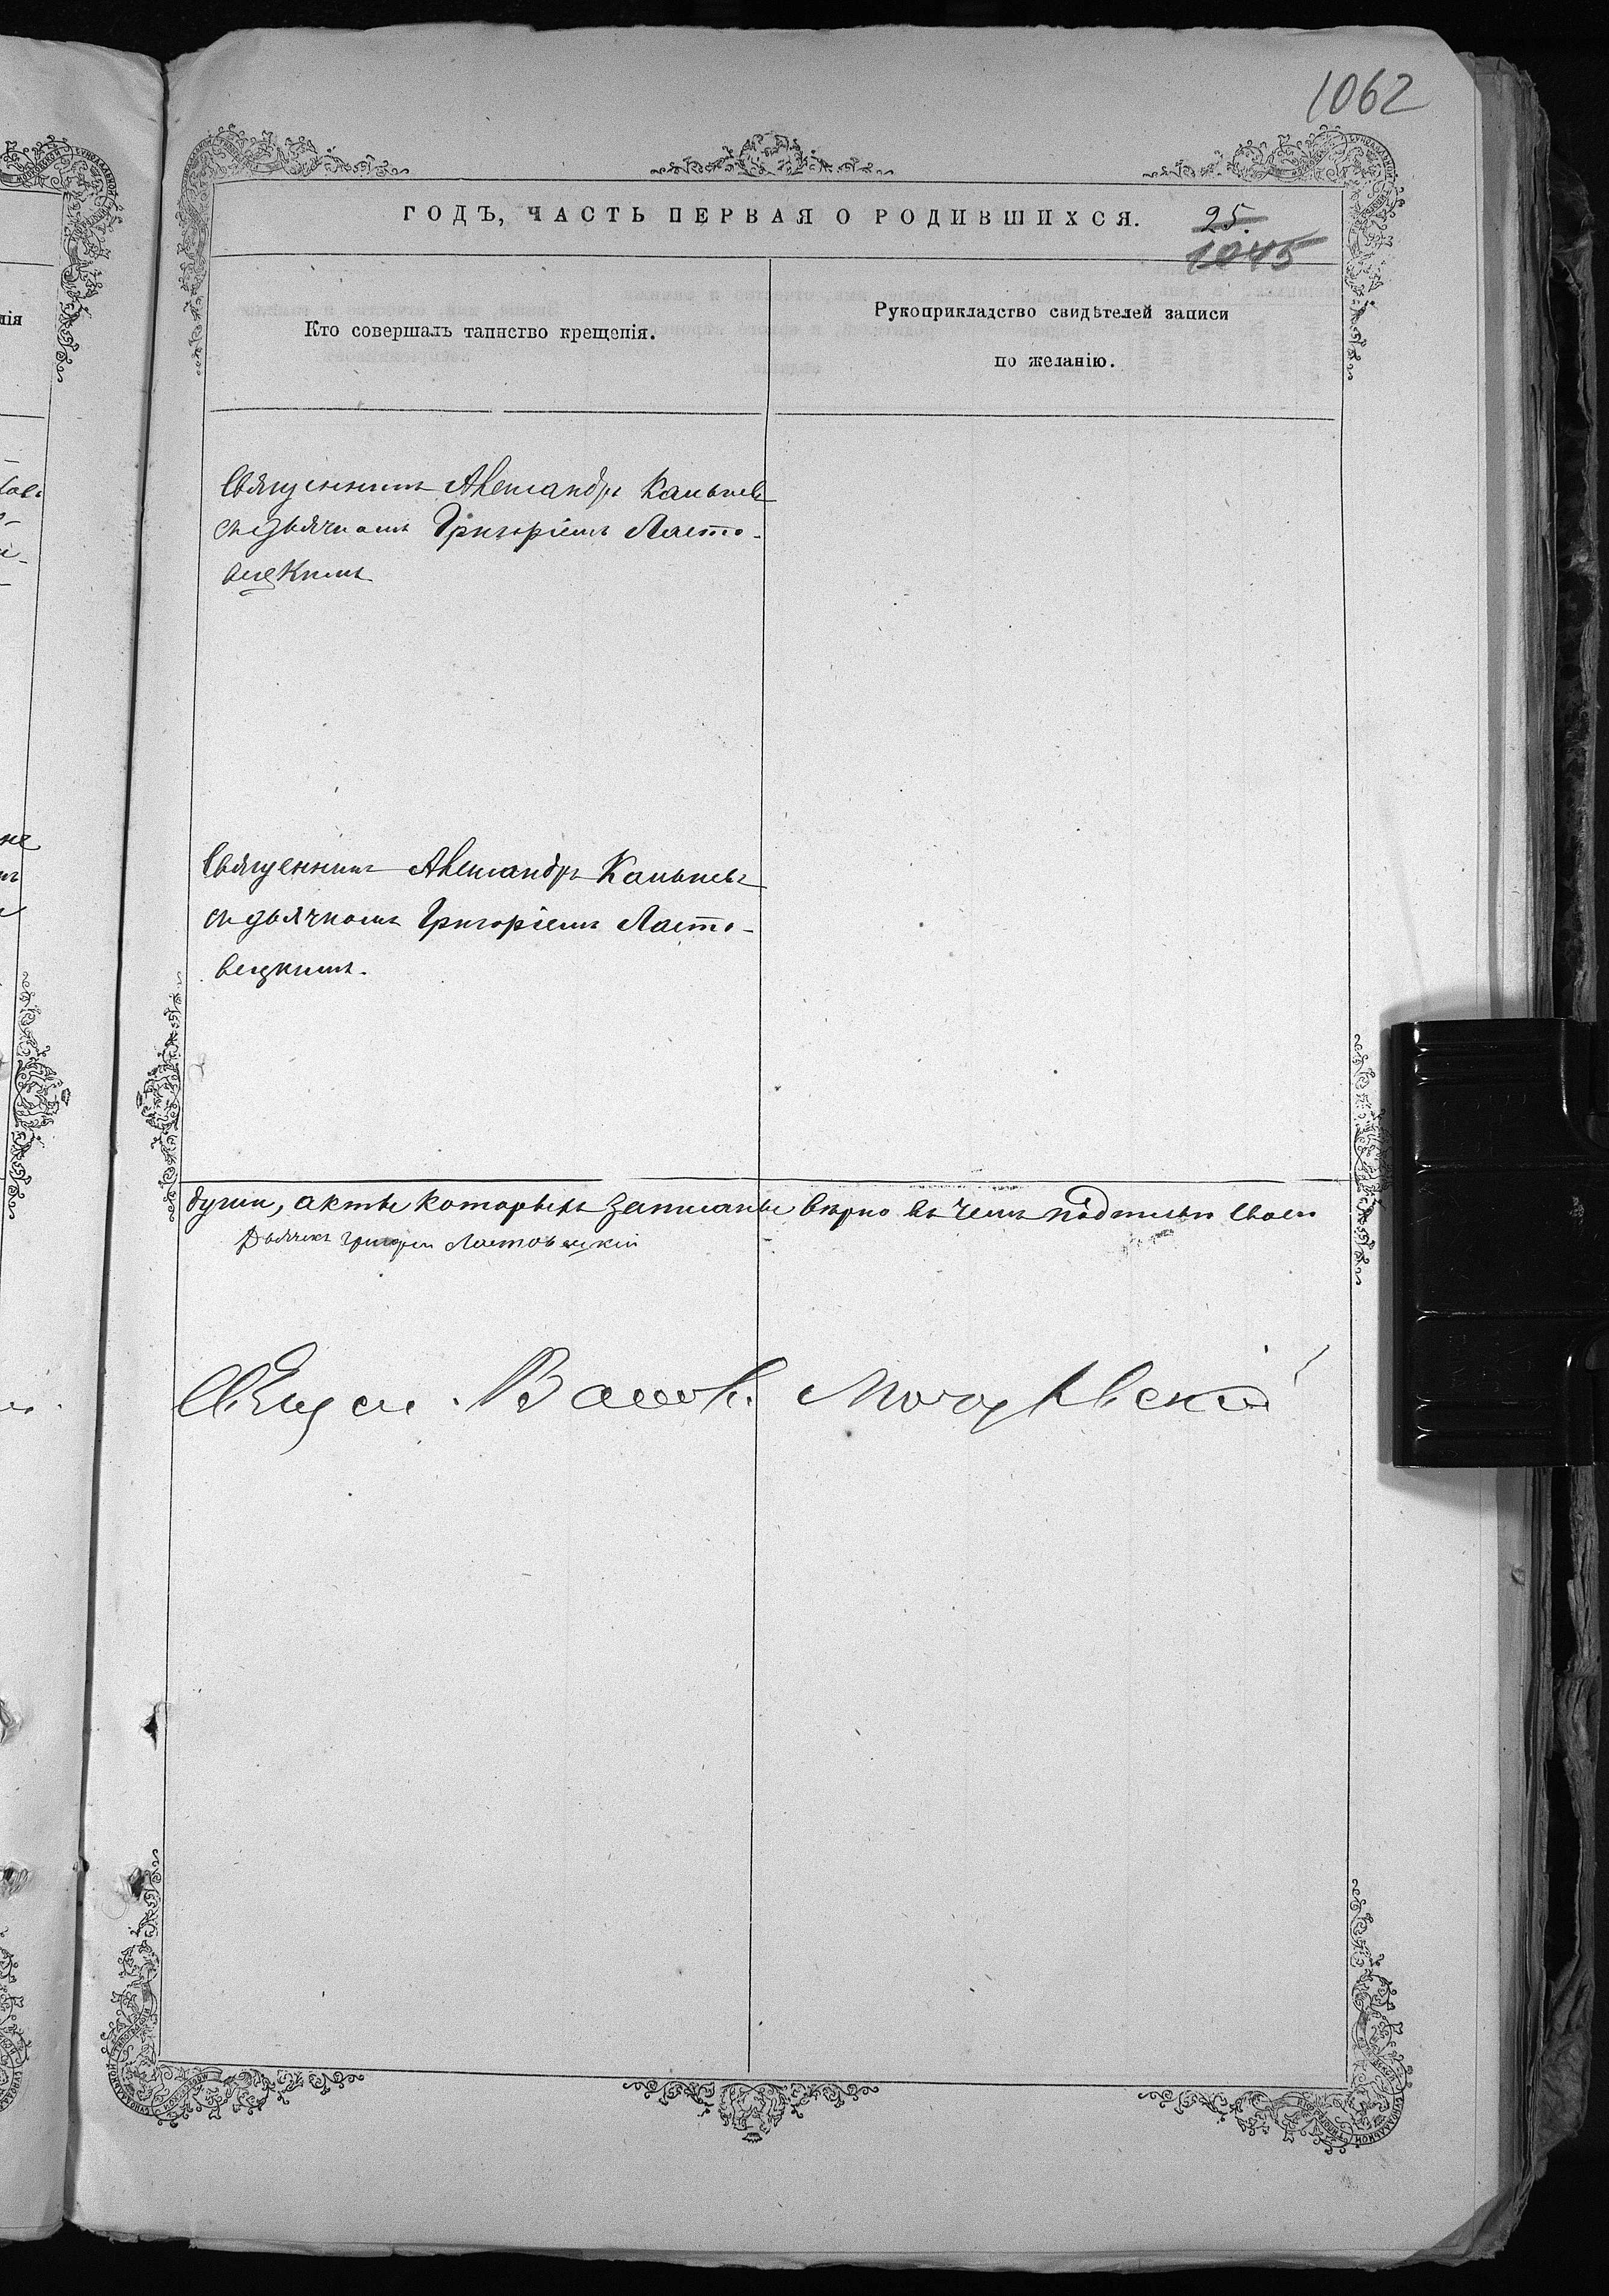 1062
ГОДЪ, ЧАСТЬ ПЕРВАЯ О РОДИВШИХСЯ.
25.
1045
Кто совершалъ таинство крещенія.
Рукоприкладство свидѣтелей записи
по желанію.
Священникъ Александръ
съ дьячкомъ Григоріемъ Ласто-
вецкимъ
Священникъ Александръ
съ дьячкомъ Григоріемъ Ласто-
вецкимъ.
души, акты которыхъ записаны вѣрно въ чемъ
Дьячекъ Григорій Ластовецкій